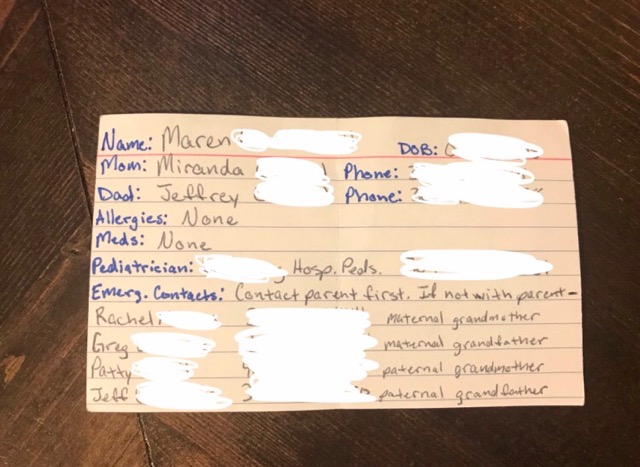 Name: Maren DOB:
Mom: Miranda Phone:
Dad: Jeffrey Phone:
Allergies: None
Meds: None
Pediatrician: , Hosp. Peds.
Emerg. Contacts: Contact parent first. If not with parent-
Rachel maternal grandmother
Greg maternal grandfather
Patty paternal grandmother
Jeff paternal grandfather